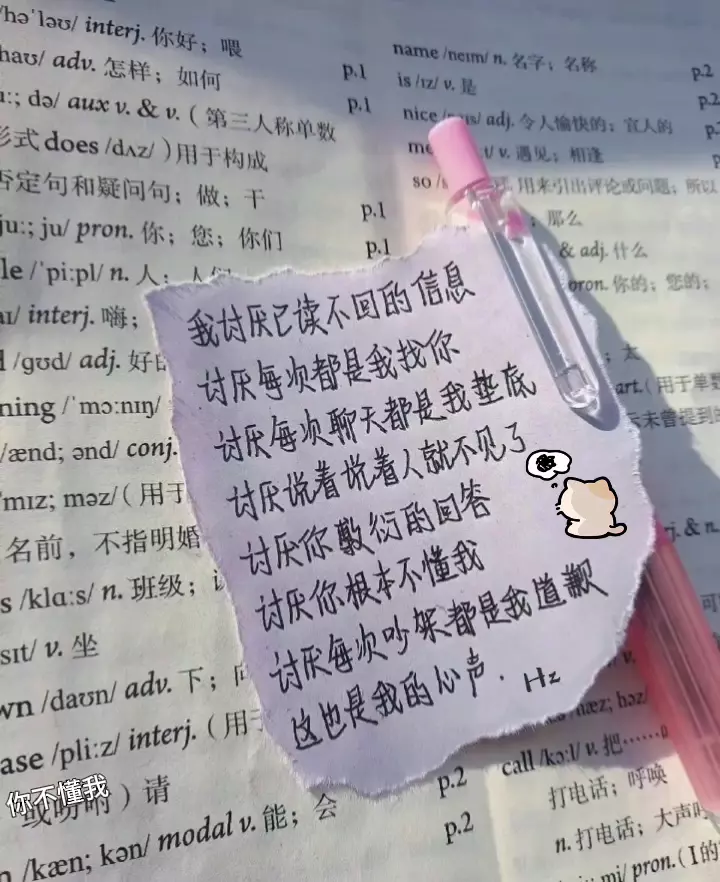 /həˈləʊ/ interj. 你好；喂
/haʊ/ adv. 怎样；如何 p.1
də/ aux v. & v.（第三人称单数 p.1
形式does /dʌz/）用于构成
否定句和疑问句；做；干
juː; ju/ pron. 你；您；你们 p.1
/ˈpiːpl/ n. 人； p.1
interj. 嗨；
/ɡʊd/ adj.
/ˈmɔːnɪŋ/
/ænd; ənd/ conj.
mɪz; məz/（用于
名前，不指明婚
/klɑːs/ n. 班级；
sɪt/ v. 坐
/daʊn/ adv. 下；
/pliːz/ interj.（用于
或吩咐）请 p.2
/kæn; kən/ modal v. 能；会 p.2
name /neɪm/ n. 名字；名称 p.2
is /ɪz/ v. 是 p.2
nice adj. 令人愉快的；宜人的
v. 遇见；相逢
so 用来引出评论或问题；所以
那么
& adj. 什么
pron. 你的；您的；
art.（用于单数
未曾提到
call /kɔːl/ v. 把……
打电话；呼唤
n. 打电话；大声
pron.（I的
我讨厌已读不回的信息
讨厌每次都是我找你
讨厌每次聊天都是我垫底
讨厌说着说着人就不见了
讨厌你敷衍的回答
讨厌你根本不懂我
讨厌每次吵架都是我道歉
这也是我的心声. Hz
你不懂我